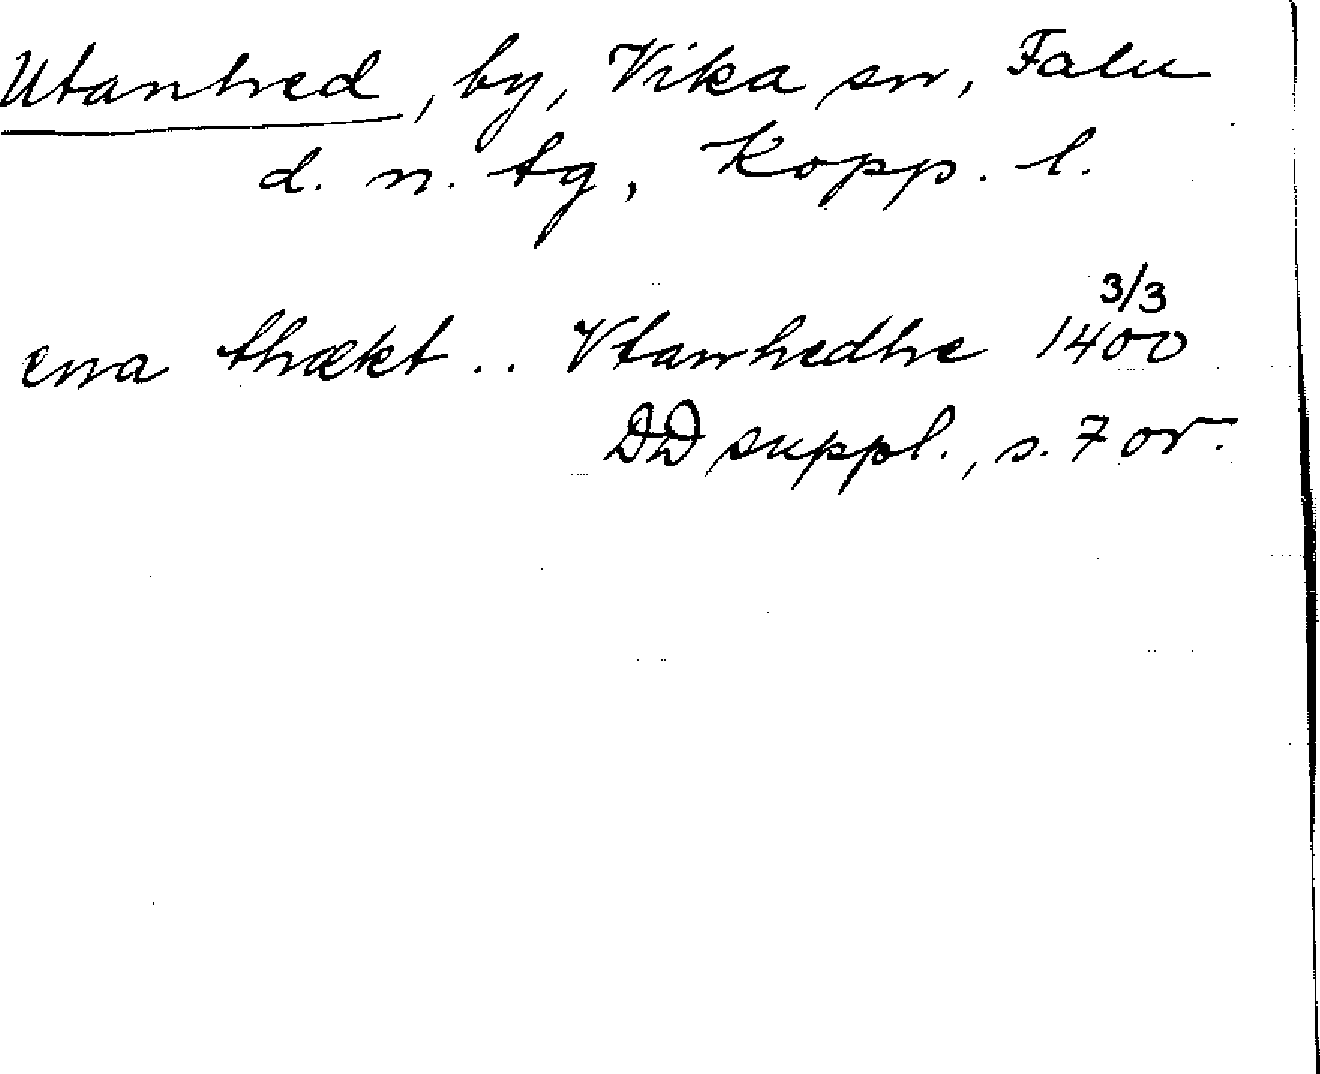 Utanhed, by, Vika sn, Falu
d. n. tg, Kopp. l.
ena thækt .. Vtanhedhe 1400 3/3
DD suppl., s. 7 or.